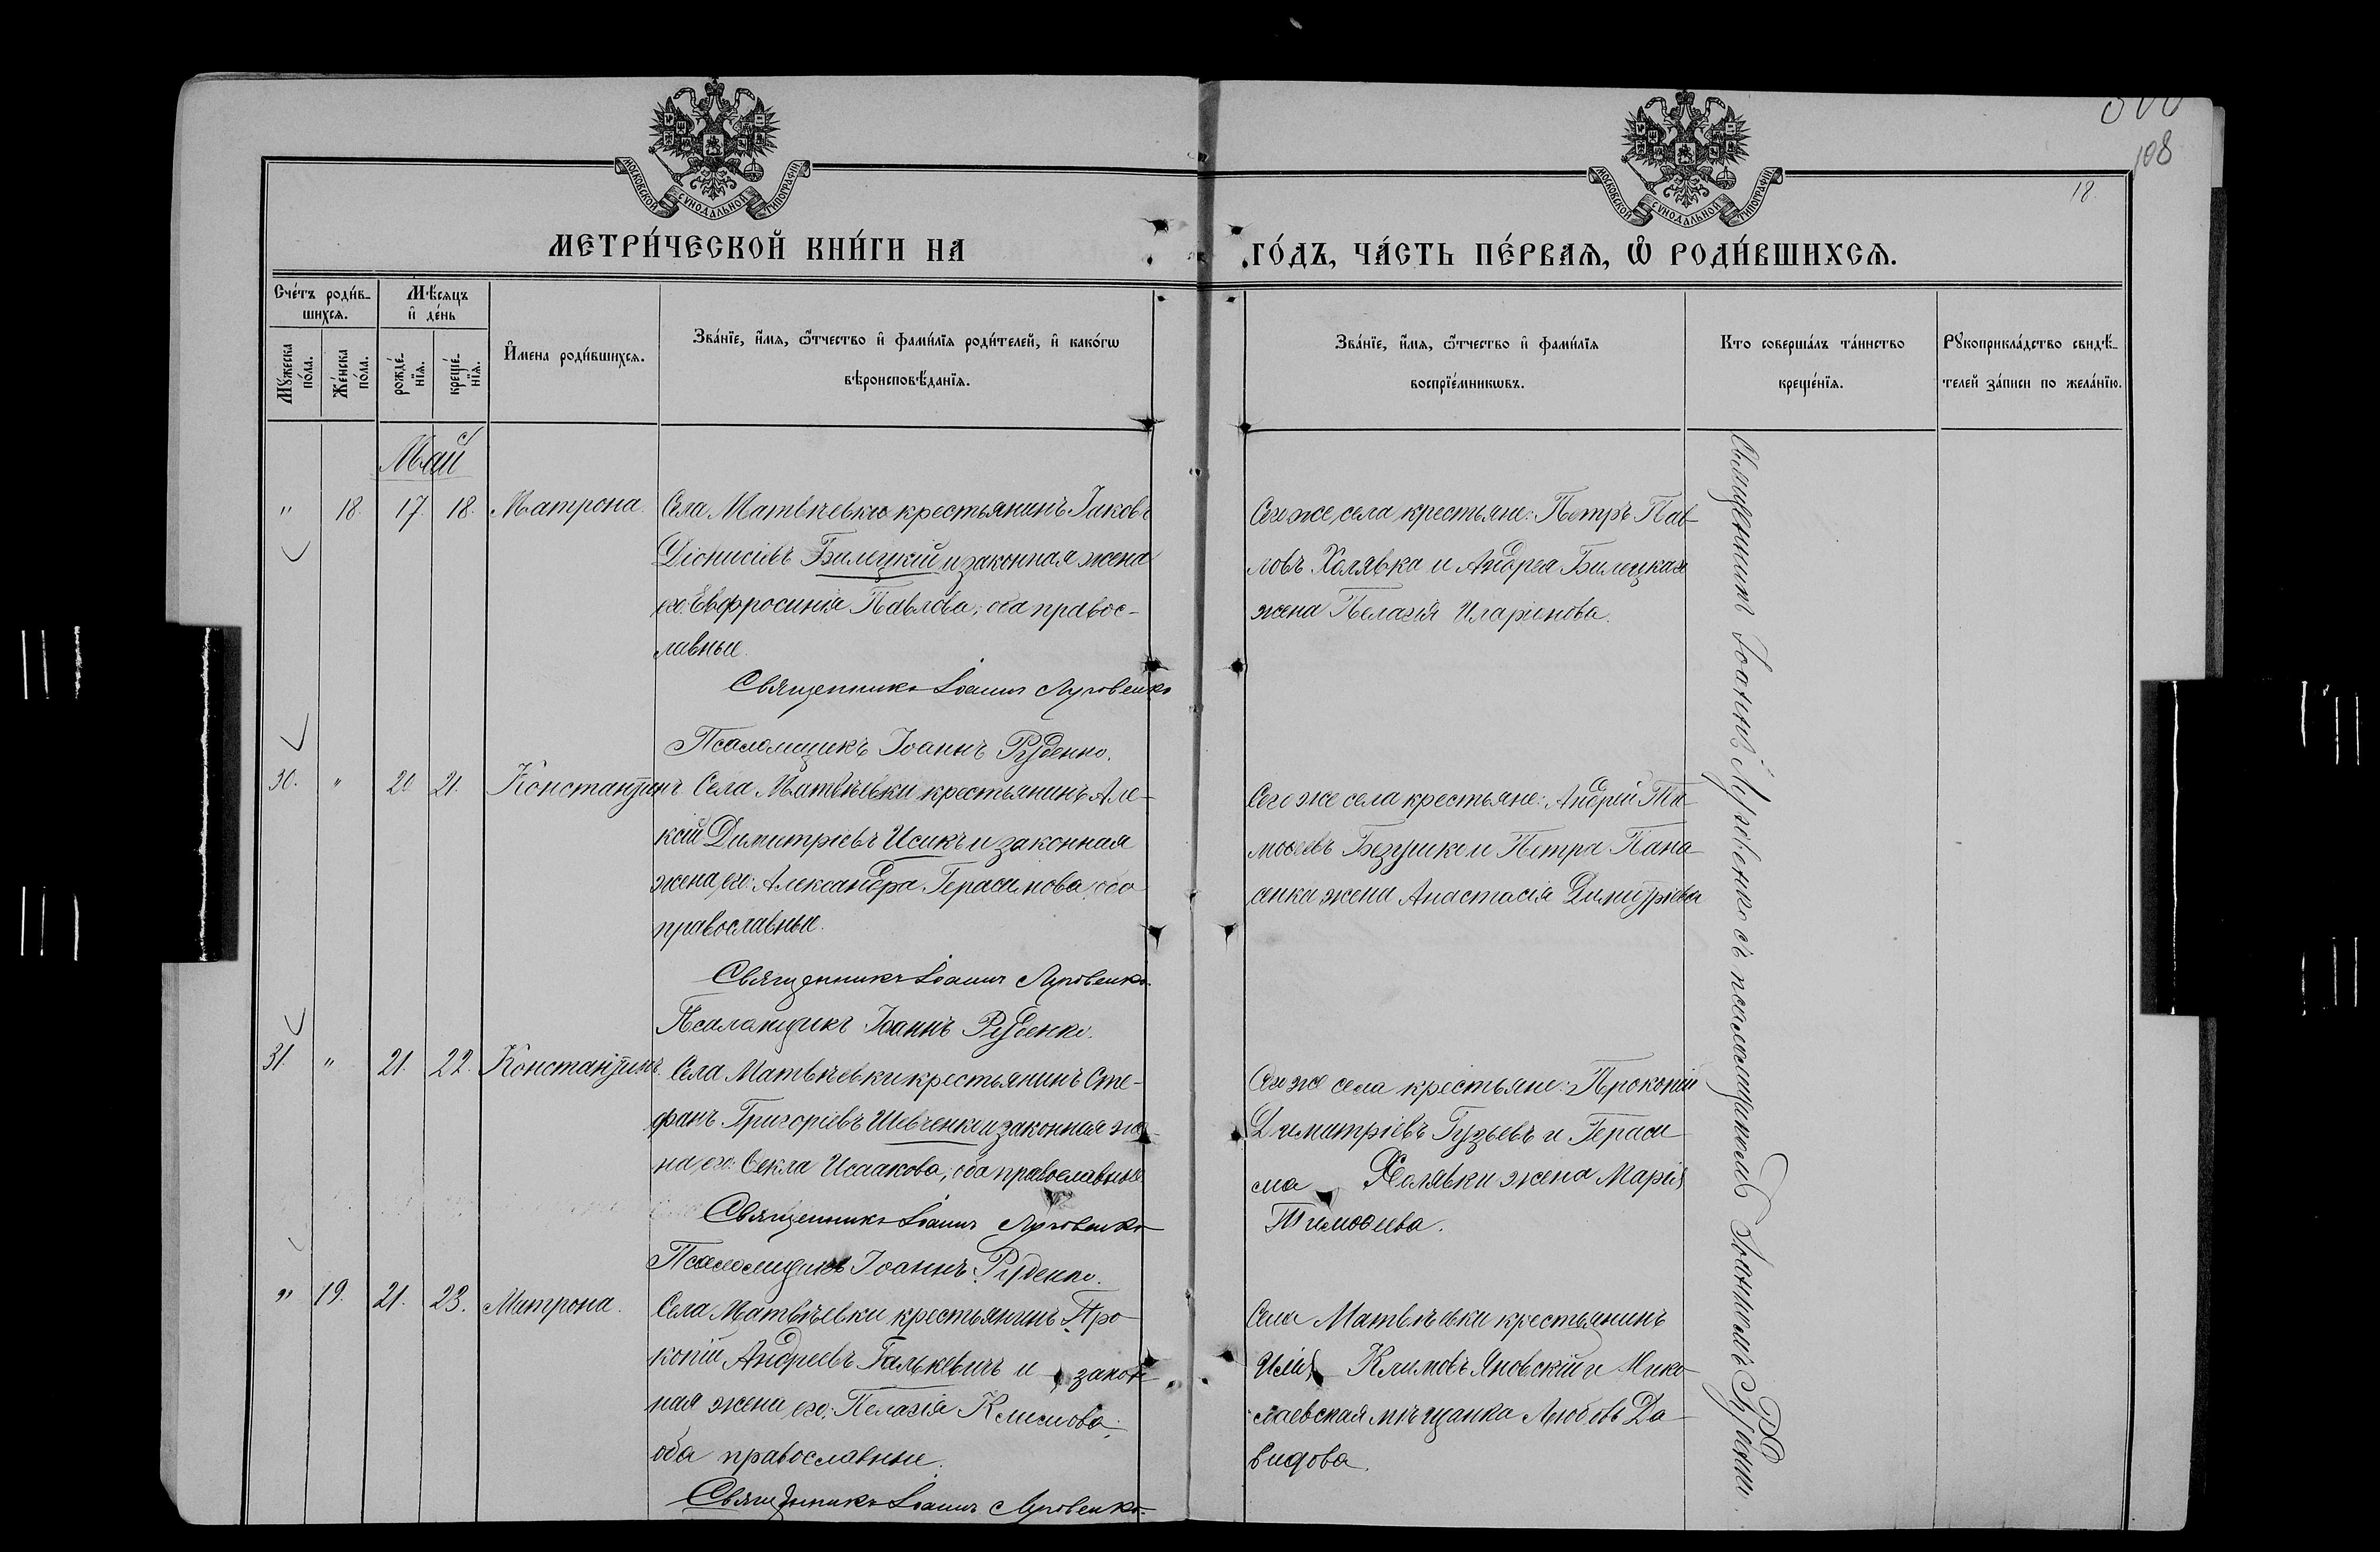 МОСКОВСКОЙ СУНОДАЛЬНОЙ ТИПОГРАФІИ
МОСКОВСКОЙ СУНОДАЛЬНОЙ ТИПОГРАФІИ
108
18.
МЕТРИ́ЧЕСКОЙ КНИ́ГИ НА
ГО́ДЪ, ЧА́СТЬ ПЕ́РВАѦ, Ѡ҆ РОДИ́ВШИХСѦ.
Сче́тъ роди́в-
шихсѧ.
Мꙋ́жеска по́ла.
Же́нска по́ла.
Мѣ́сѧцъ
и҆ де́нь
рожде́-нїѧ.
креще́-нїѧ.
И҆́мена роди́вшихсѧ.
Зва́нїе, и҆́мѧ, ѻ҆́тчество и҆ фами́лїѧ роди́телей, и҆ како́гѡ
вѣроисповѣ́данїѧ.
Зва́нїе, и҆́мѧ, ѻ҆́тчество и҆ фами́лїѧ
воспрїе́мникѡвъ.
Кто соверша́лъ та́инство
креще́нїѧ.
Рꙋкоприкла́дство свидѣ́-
телей за́писи по жела́нїю.
Май
" 18. 17. 18. Матрона.
Села Матвѣевки крестьянинъ Іаковъ
Діонисіевъ Билецкій и законная жена
его: Евфросинія Павлова; оба правос-
лавные.
Священникъ Іоаннъ Луговенко
Псаломщикъ Іоаннъ Руденко.
Сего же села крестьяне: Петръ Пав-
ловъ Холявка и Андрея Билецкая
жена Пелагія Иларіонова.
30. " 20 21. Константинъ
Села Матвѣевки крестьянинъ Але-
ксій Димитріевъ Исикъ и законная
жена его: Александра Герасимова; оба
православные.
Священникъ Іоаннъ Луговенко.
Псаломщикъ Іоаннъ Руденко.
Сего же села крестьяне: Андрей Ти-
моѳеевъ и Петра Пана-
сенка жена Анастасія Димитріева
31. " 21. 22. Константинъ.
Села Матвѣевки крестьянинъ Сте-
фанъ Григоріевъ Шевченко и законная же-
на его: Ѳекла Исаакова; оба православные.
Священникъ Іоаннъ Луговенко
Псаломщикъ Іоаннъ Руденко.
Сего же села крестьяне: Прокопій
Димитріевъ Гузьевъ и Гераси-
ма Холявки жена Марія
Тимоѳеева.
" 19. 21. 23. Матрона.
Села Матвѣевки крестьянинъ Про-
копій Андреевъ Галькевичъ и закон-
ная жена его: Пелагія Климова;
оба православные.
Священникъ Іоаннъ Луговенко.
Села Матвѣевки крестьянинъ
Илія Климовъ Яновскій и Нико-
лаевская мѣщанка Любовь Да-
видова.
Священникъ Іоаннъ Луговенко съ псаломщикомъ Іоанномъ Руденко.